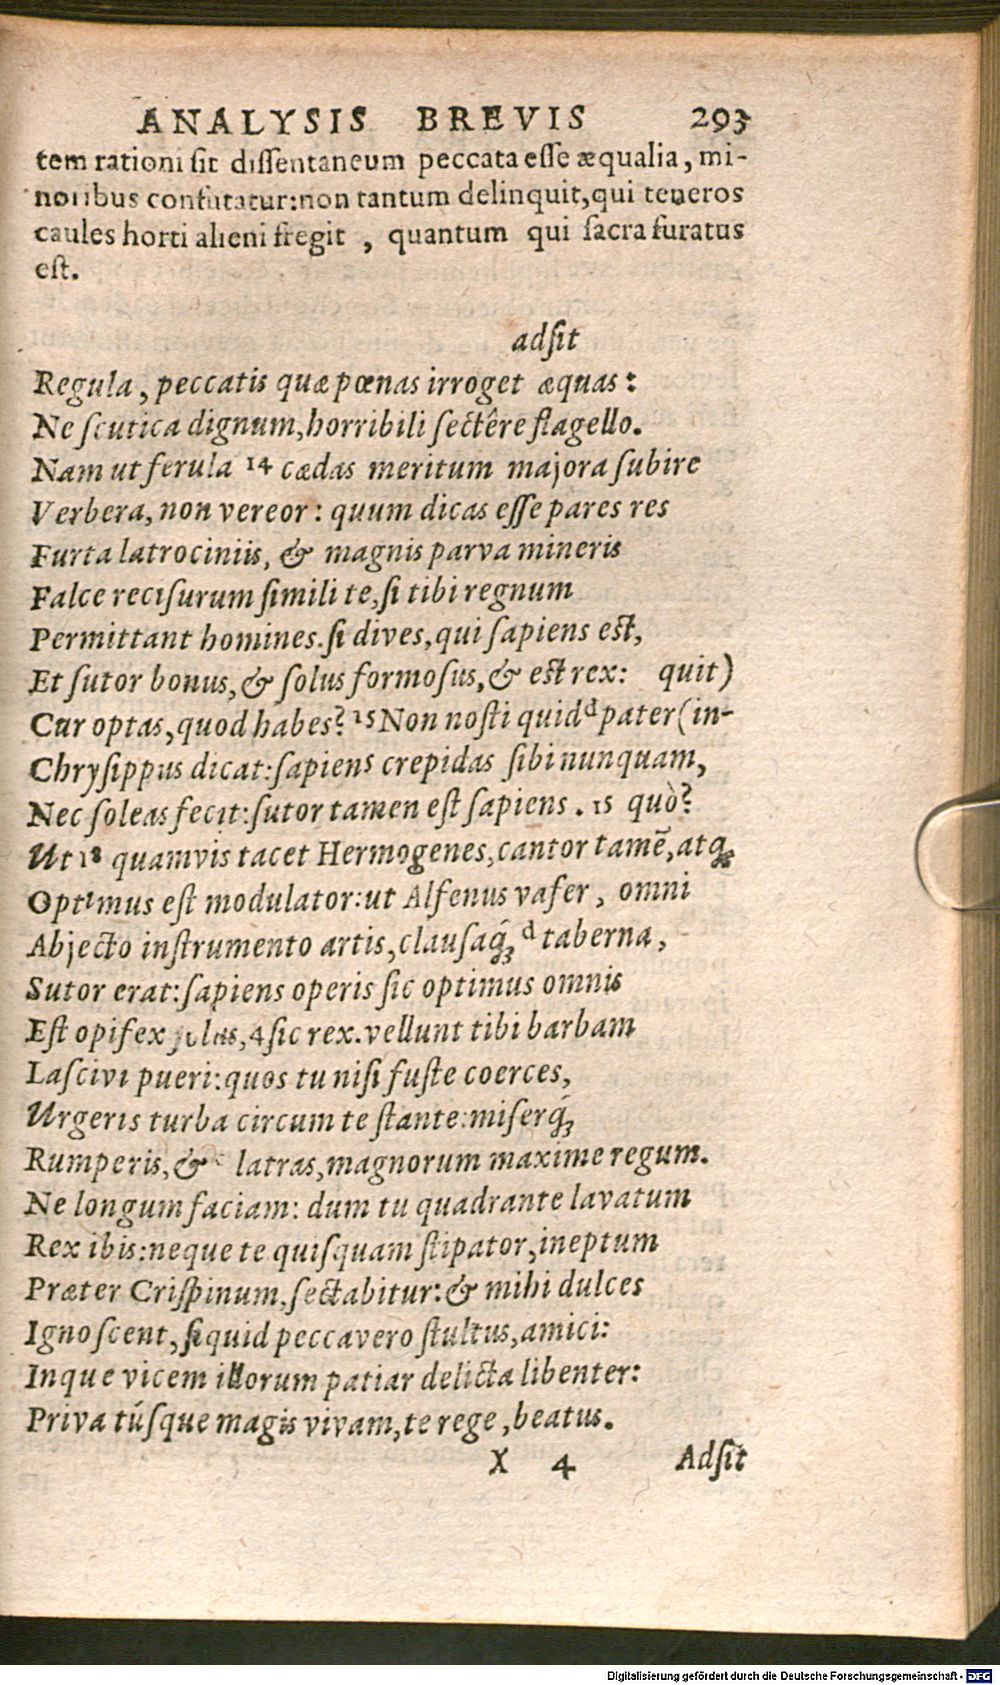 ANALYSIS BREVIS 293
tem rationi sit dissentaneum peccata esse æqualia, mi-
noribus confutatur: non tantum delinquit, qui teneros
caules horti alieni fregit , quantum qui sacra furatus
est.
adsit
Regula, peccatis quæ pœnas irroget æquas:
Ne scutica dignum, horribili sectêre flagello.
Nam ut ferula 14 cædas meritum majora subire
Verbera, non vereor: quum dicas esse pares res
Furta latrociniis, & magnis parva mineris
Falce recisurum simili te, si tibi regnum
Permittant homines. si dives, qui sapiens est,
Et sutor bonus, & solus formosus, & est rex: quit)
Cur optas, quod habes? 15 Non nosti quid d pater (in-
Chrysippus dicat: sapiens crepidas sibi nunquam,
Nec soleas fecit: sutor tamen est sapiens. 15 quò?
Ut 18 quamvis tacet Hermogenes, cantor tamē, atq;
Optimus est modulator: ut Alfenus vafer, omni
Abjecto instrumento artis, clausaq́; d taberna,
Sutor erat: sapiens operis sic optimus omnis
Est opifex solus, 4 sic rex. vellunt tibi barbam
Lascivi pueri: quos tu nisi fuste coerces,
Urgeris turba circum te stante: miserq́;
Rumperis, & latras, magnorum maxime regum.
Ne longum faciam: dum tu quadrante lavatum
Rex ibis: neque te quisquam stipator, ineptum
Præter Crispinum, sectabitur: & mihi dulces
Ignoscent, si quid peccavero stultus, amici:
Inque vicem illorum patiar delicta libenter:
Privatúsque magis vivam, te rege, beatus.
X 4 Adsit
Digitalisierung gefördert durch die Deutsche Forschungsgemeinschaft - DFG